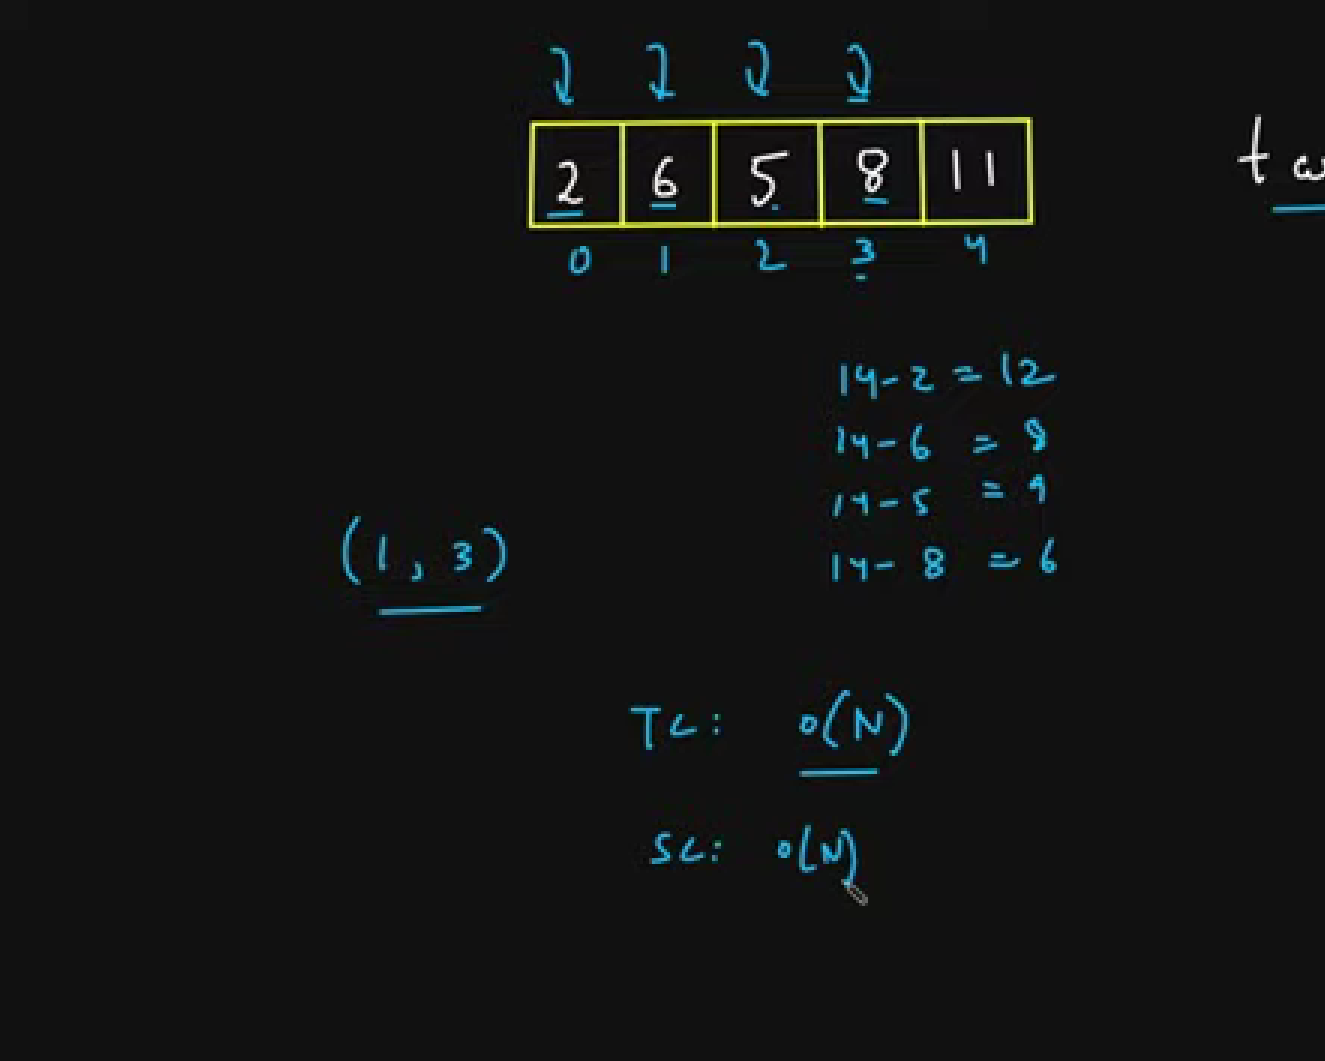 2 6 5 8 11
0 1 2 3 4
14-2 = 12
14-6 = 8
14-5 = 9
14-8 = 6
(1, 3)
TC: O(N)
SC: O(N)